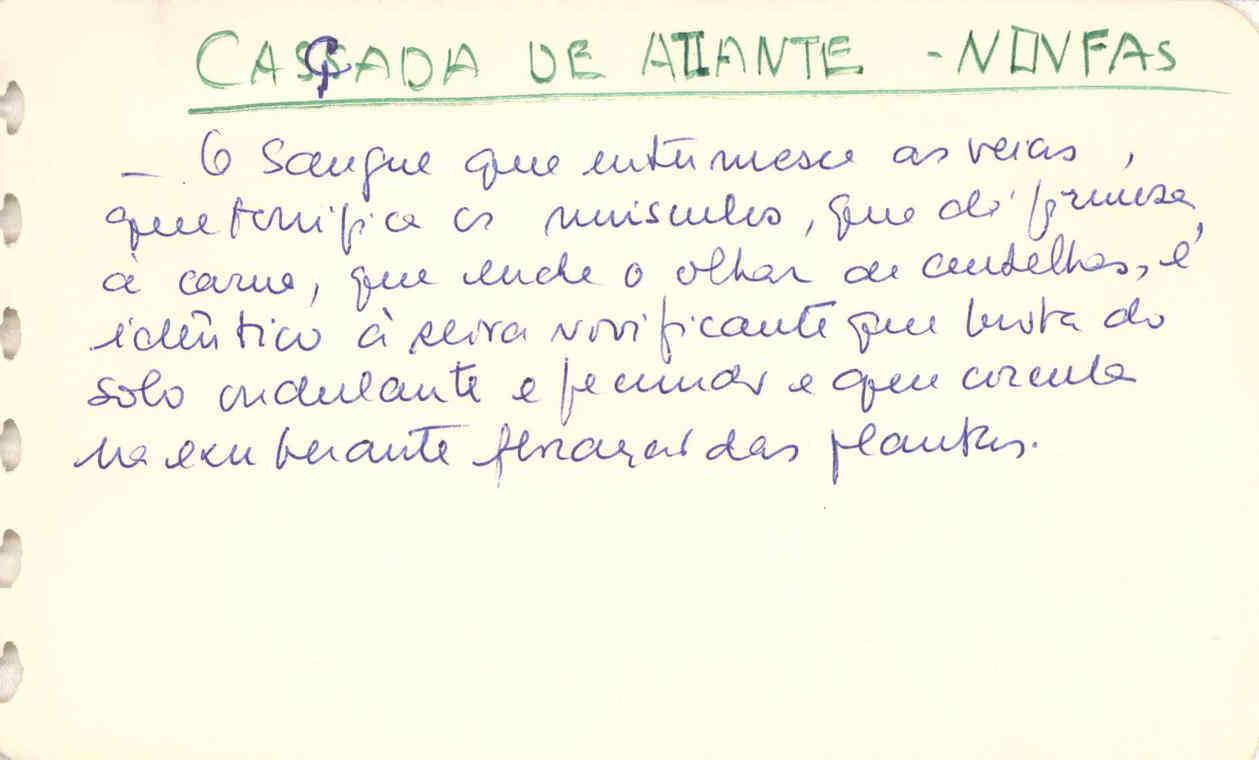 CASCADA DE ATLANTE - NINFAS
_ O sangue que entumesce as veias,
que tonifica os musculos, que dá firmesa
à carne, que enche o olhar de centelhas, é
idêntico à seiva vivificante que brota do
solo ondulante e fecundo e que circula
na exuberante floração das plantas.